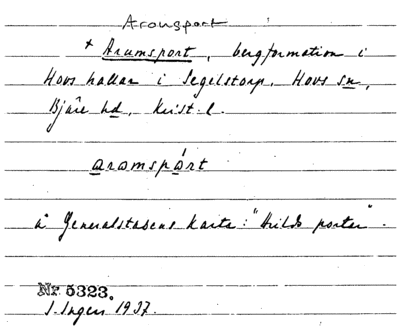 Aronsport
+ Aramsport, bergformation i
Hovs hallar i Segelstorp, Hovs sn,
Bjäre hd, Krist. l.
aramspårt
å Generalstabens karta: "Hilds portar".
Nr 5323.
J. Ingers 1937.